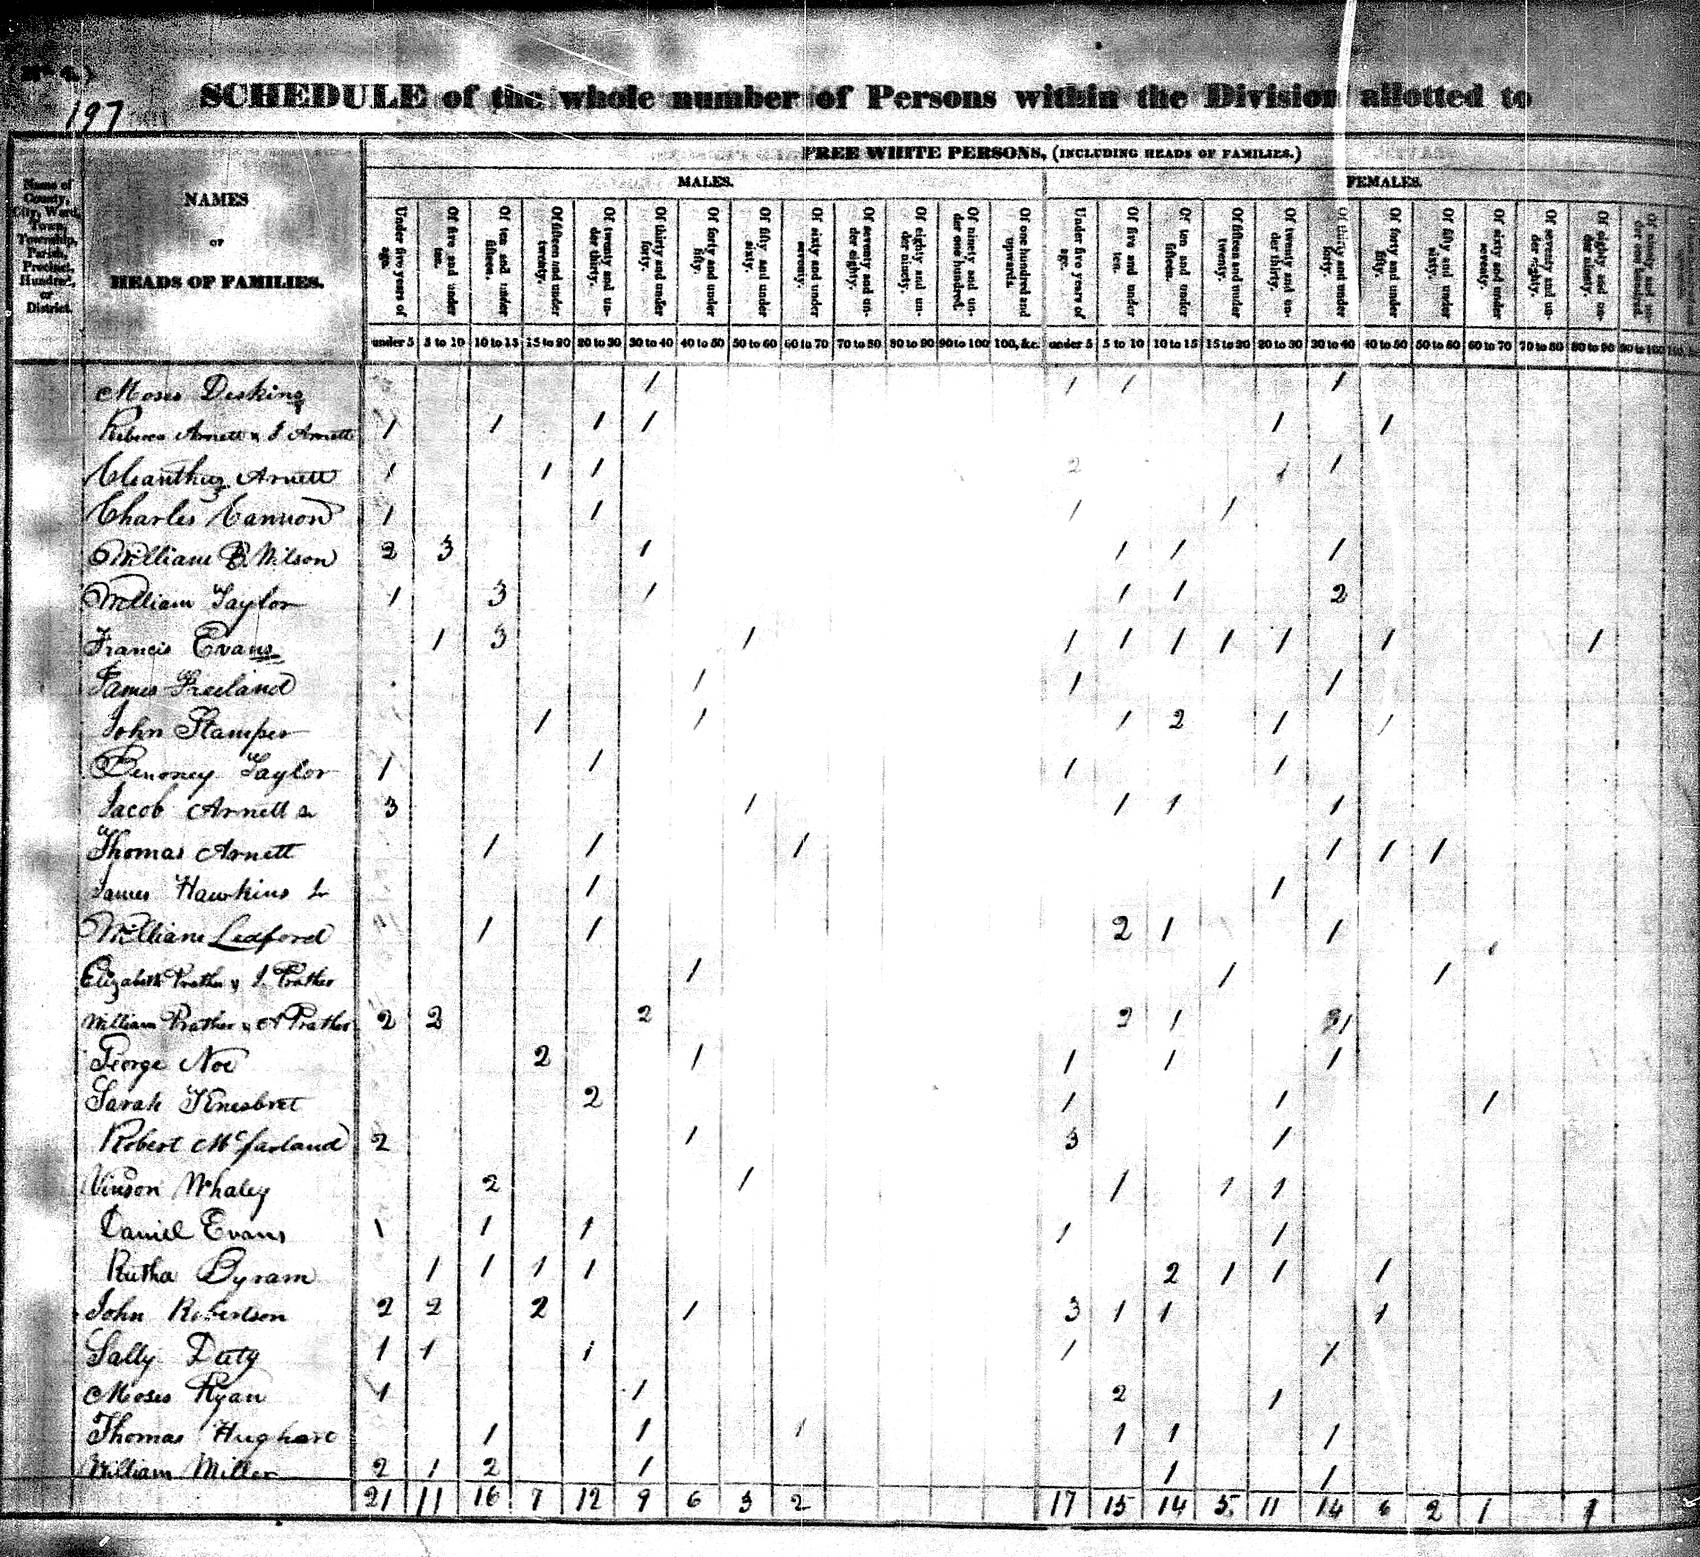 (No 4.)
197
SCHEDULE of the whole number of Persons within the Division allotted to
FREE WHITE PERSONS, (INCLUDING HEADS OF FAMILIES.)
MALES. FEMALES.
Name of County, City, Ward, Town, Township, Parish, Precinct, Hundred, or District.
NAMES
OF
HEADS OF FAMILIES.
Under five years of age. Of five and under ten. Of ten and under fifteen. Of fifteen and under twenty. Of twenty and under thirty. Of thirty and under forty. Of forty and under fifty. Of fifty and under sixty. Of sixty and under seventy. Of seventy and under eighty. Of eighty and under ninety. Of ninety and under one hundred. Of one hundred and upwards. Under five years of age. Of five and under ten. Of ten and under fifteen. Of fifteen and under twenty. Of twenty and under thirty. Of thirty and under forty. Of forty and under fifty. Of fifty and under sixty. Of sixty and under seventy. Of seventy and under eighty. Of eighty and under ninety. Of ninety and under one hundred.
under 5 5 to 10 10 to 15 15 to 20 20 to 30 30 to 40 40 to 50 50 to 60 60 to 70 70 to 80 80 to 90 90 to 100 100, &c. under 5 5 to 10 10 to 15 15 to 20 20 to 30 30 to 40 40 to 50 50 to 60 60 to 70 70 to 80 80 to 90 90 to 100
Moses Deskins 1 1 1 1
Rebeca Arnett & J Arnett 1 1 1 1 1 1
Arnett 1 1 1 2 1 1
Charles Cannon 1 1 1 1
William B. Wilson 2 3 1 1 1 1
William Taylor 1 3 1 1 1 2
Francis Evans 1 3 1 1 1 1 1 1 1 1
James Freeland 1 1 1
John Stamper 1 1 1 2 1 1
Benoney Taylor 1 1 1 1
Jacob Arnett 3 1 1 1 1
Thomas Arnett 1 1 1 1 1 1
James Hawkins 1 1
William Ledford 1 1 2 1 1
Elizabeth Prather & J. Prather 1 1 1
William Prather & A Prather 2 2 2 2 1 1
George Noe 2 1 1 1 1
Sarah 2 1 1 1
Robert McFarland 2 1 3 1
Vinson Whaley 2 1 1 1 1
Daniel Evans 1 1 1 1 1
Rutha Byram 1 1 1 1 2 1 1 1
John Robertson 2 2 2 1 3 1 1 1
Sally Duty 1 1 1 1 1
Moses Ryan 1 1 2 1
Thomas Hughart 1 1 1 1 1 1
William Miller 2 1 2 1 1 1
21 11 16 7 12 9 6 3 2 17 15 14 5 11 14 6 2 1 1